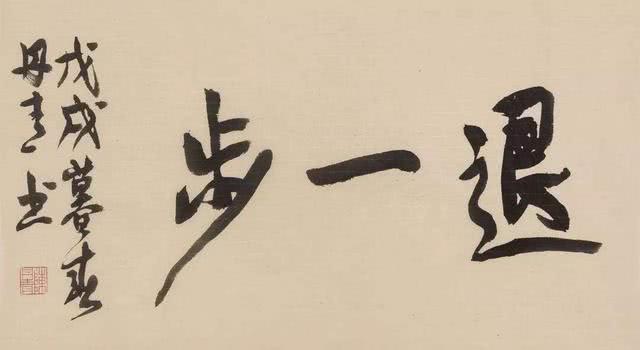 退一步
戊戌暮春
丹青书